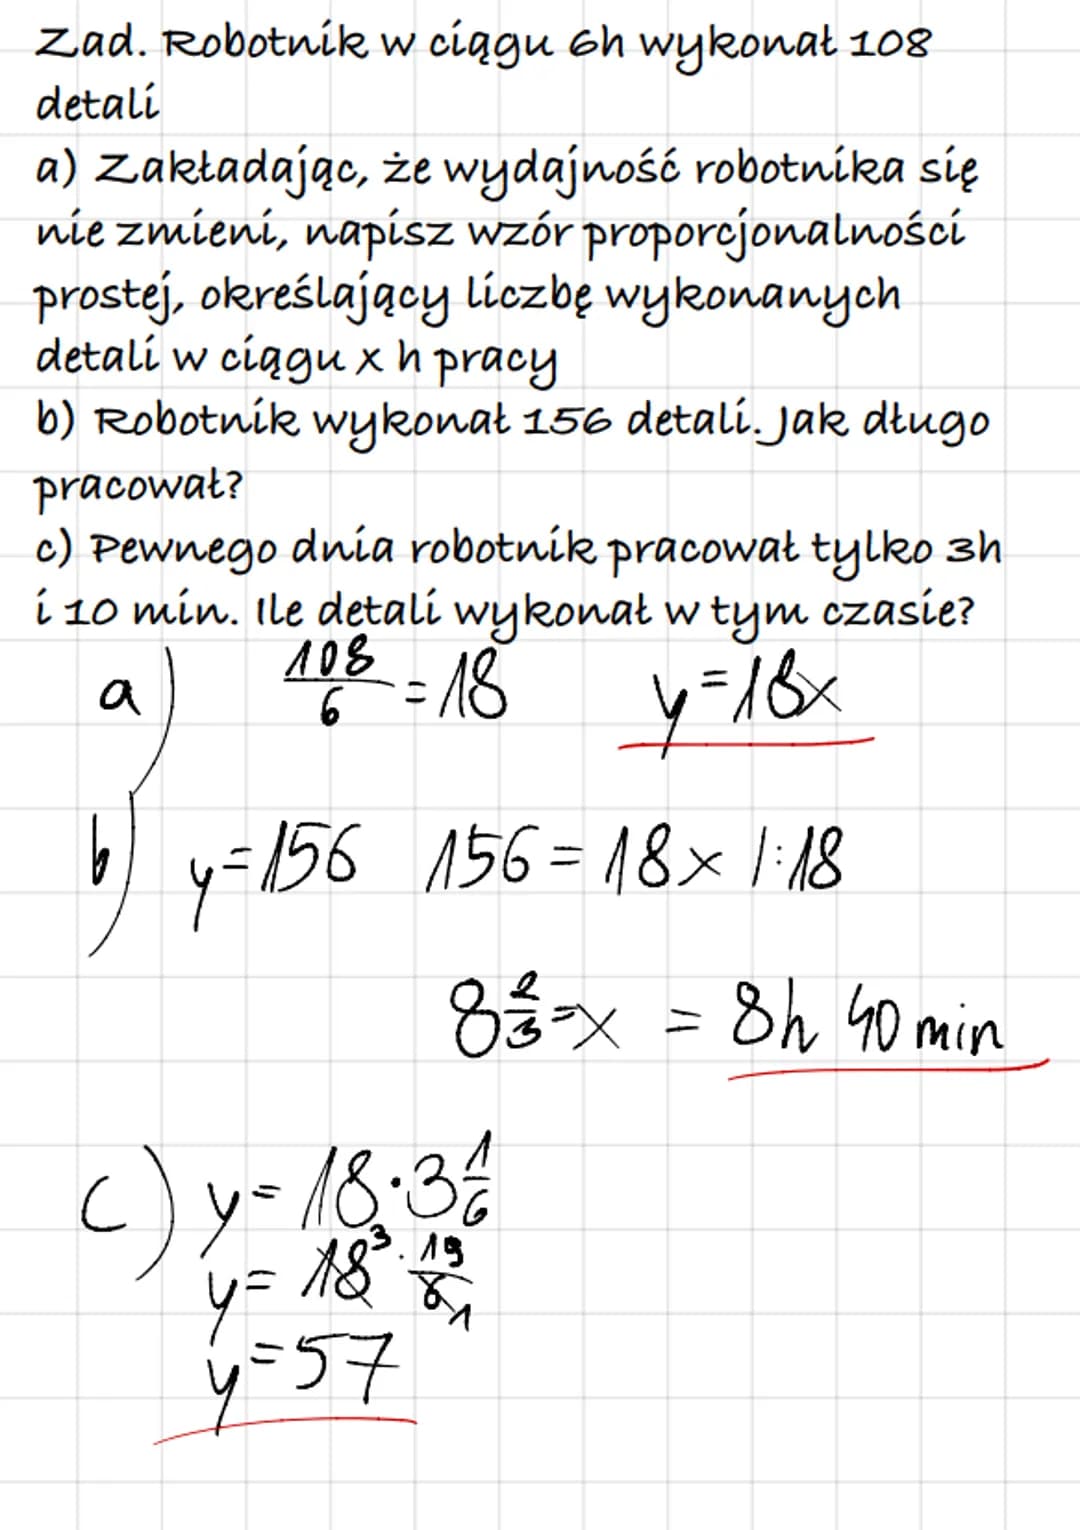 Zad. Robotnik w ciągu 6h wykonał 108
detali
a) Zakładając, że wydajność robotnika się
nie zmieni, napisz wzór proporcjonalności
prostej, określający liczbę wykonanych
detali w ciągu x h pracy
b) Robotnik wykonał 156 detali. Jak długo
pracował?
c) Pewnego dnia robotnik pracował tylko 3h
i 10 min. Ile detali wykonał w tym czasie?
a) 108/6 = 18 y=18x
b) y=156 156=18x /:18
8 2/3 =x = 8h 40 min
c) y= 18·3 1/6
y= 18 3 · 19/6 1
y=57